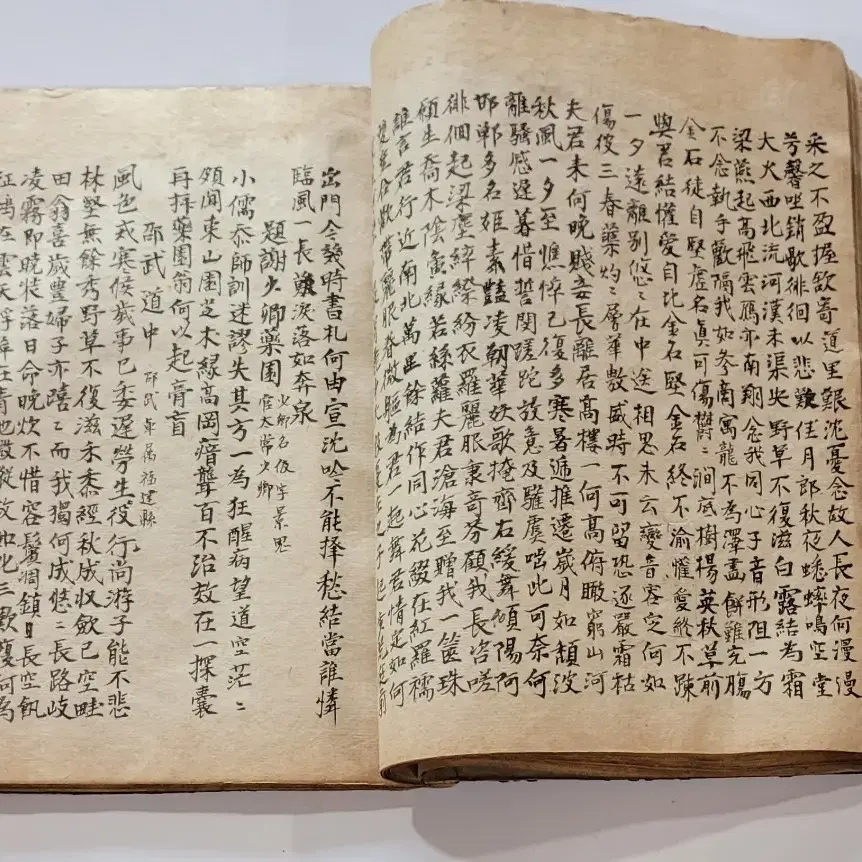 采之不盈握欲寄道里艱沈憂念故人長夜何漫漫
芳馨坐銷歇徘徊以悲難佳月郎秋夜蟋蟀鳴空堂
大火西北流河漢未渠央野草不復滋白露結為霜
梁燕起高飛雲鴈亦南翔念我同心子音形阻一方
不念執手歡隔我如參商寓龍不為澤畫餅難充膓
金石徒自堅虛名真可傷欝〻澗底樹揚英秋草前
與君結懽愛自比金石堅金石終不渝懽愛終不踈
一夕遠離别悠〻在中途相思未云變音容定何如
傷彼三春蘂灼〻層華敷盛時不可留恐逐嚴霜枯
夫君未何晚賤妾長離居高樓一何高俯瞰窮山河
秋風一夕至憔悴已復多寒暑逓推遷歲月如頹波
離騷感遲暮惜誓閔蹉跎放意及驩虞咄此可奈何
邯鄲多名姬素豔凌朝華妖歌掩齊右緩舞傾陽阿
徘徊起梁塵綷縩紛衣羅麗服秉奇芬顧我長咨嗟
願生喬木陰夤緣若絲蘿夫君滄海至贈我一篋珠
誰言君行近南北萬里餘結作同心花綴在紅羅襦
雙垂合歡帶麗服眷微軀為君一起舞君情定如何
出門合發時書札何由宣沈吟不能擇愁結當誰憐
臨風一長歎淚落如奔泉
題謝少卿藥園 少卿名伋字景思
官太常少卿
小儒忝師訓迷謬失其方一為狂酲病望道空茫〻
頗聞東山園芝术緣高岡瘖聾百不治效在一探囊
再拜藥園翁何以起膏肓
邵武道中 邵武軍萬福建縣
風色戒寒候歲事已委遲勞生役行尚游子能不悲
林壑無餘秀野草不復滋禾黍經秋成収斂已空畦
田翁喜歲豊婦子亦嘻〻而我獨何成悠〻長路岐
凌霧即曉裝落日命晚炊不惜容鬢凋鎮日長空飢
征鴻在雲天浮萍在青池微蹤政如此三歎復何為